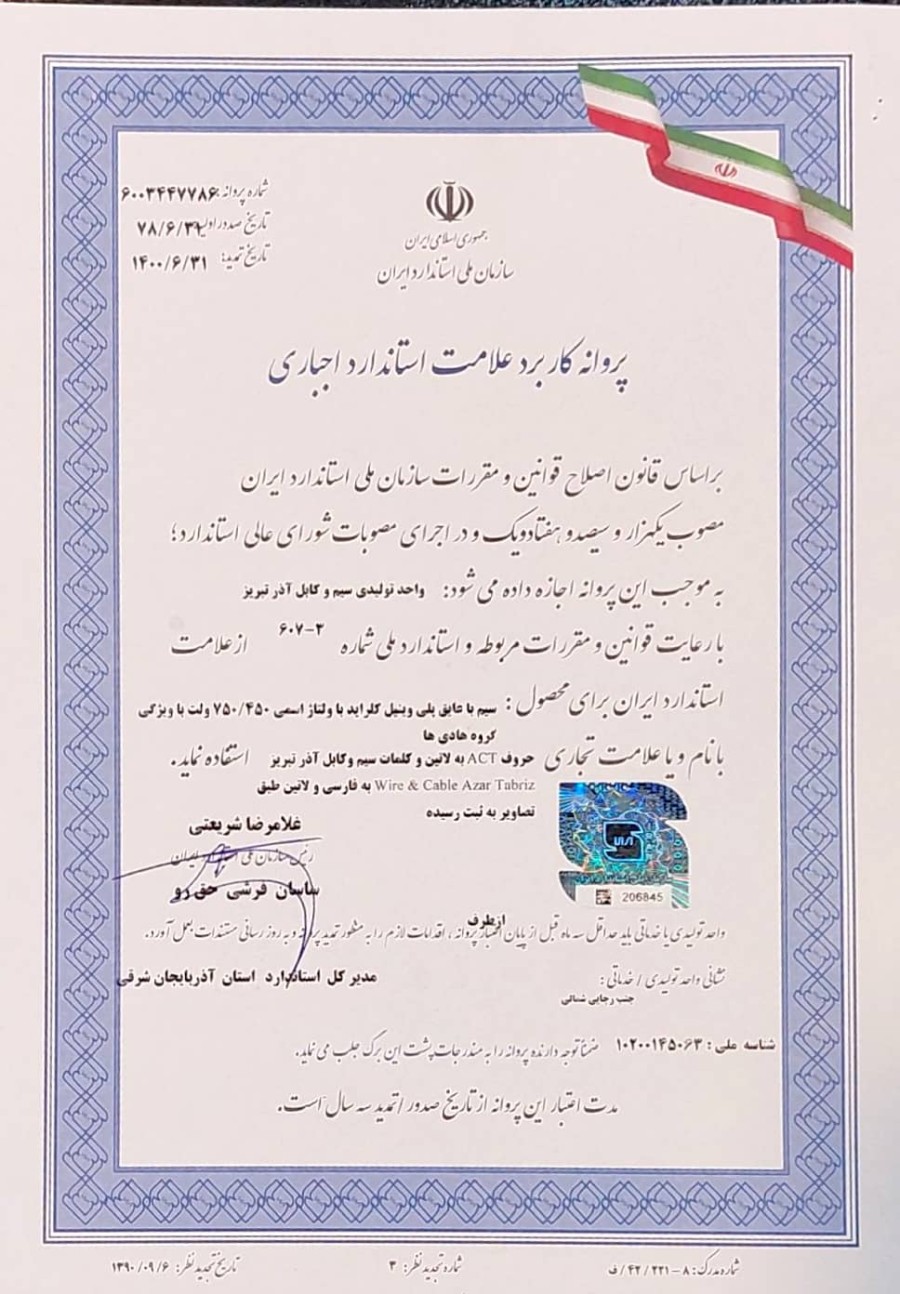 شماره پروانه: ۶۰۰۳۴۴۷۷۸۶
تاریخ صدور اولیه: ۷۸/۶/۳۱
تاریخ تمدید: ۱۴۰۰/۶/۳۱
جمهوری اسلامی ایران
سازمان ملی استاندارد ایران
پروانه کاربرد علامت استاندارد اجباری
براساس قانون اصلاح قوانین و مقررات سازمان ملی استاندارد ایران
مصوب یکهزار و سیصد و هفتاد و یک و در اجرای مصوبات شورای عالی استاندارد؛
به موجب این پروانه اجازه داده می شود: واحد تولیدی سیم و کابل آذر تبریز
با رعایت قوانین و مقررات مربوطه و استاندارد ملی شماره ۶۰۷-۲ از علامت
استاندارد ایران برای محصول: سیم با عایق پلی وینیل کلراید با ولتاژ اسمی ۷۵۰/۴۵۰ ولت با ویژگی
گروه هادی ها
با نام و یا علامت تجاری حروف ACT به لاتین و کلمات سیم وکابل آذر تبریز استفاده نماید.
Wire & Cable Azar Tabriz به فارسی و لاتین طبق
تصاویر به ثبت رسیده
غلامرضا شریعتی
رئیس سازمان ملی استاندارد ایران
ساسان فرشی حق رو
206845
ازطرف
واحد تولیدی یا خدماتی باید حداقل سه ماه قبل از پایان اعتبار پروانه، اقدامات لازم را به منظور تمدید پروانه و به روز رسانی مستندات بعمل آورد.
مدیر کل استاندارد استان آذربایجان شرقی
نشانی واحد تولیدی / خدماتی:
جنب رجایی شمالی
شناسه ملی: ۱۰۲۰۰۱۴۵۰۶۳ ضمناً توجه دارنده پروانه را به مندرجات پشت این برگ جلب می نماید.
مدت اعتبار این پروانه از تاریخ صدور / تمدید سه سال است.
شماره مدرک: ۸-۲۲۱/۴۲/ف
شماره تجدید نظر: ۳
تاریخ تجدید نظر: ۱۳۹۰/۰۹/۶